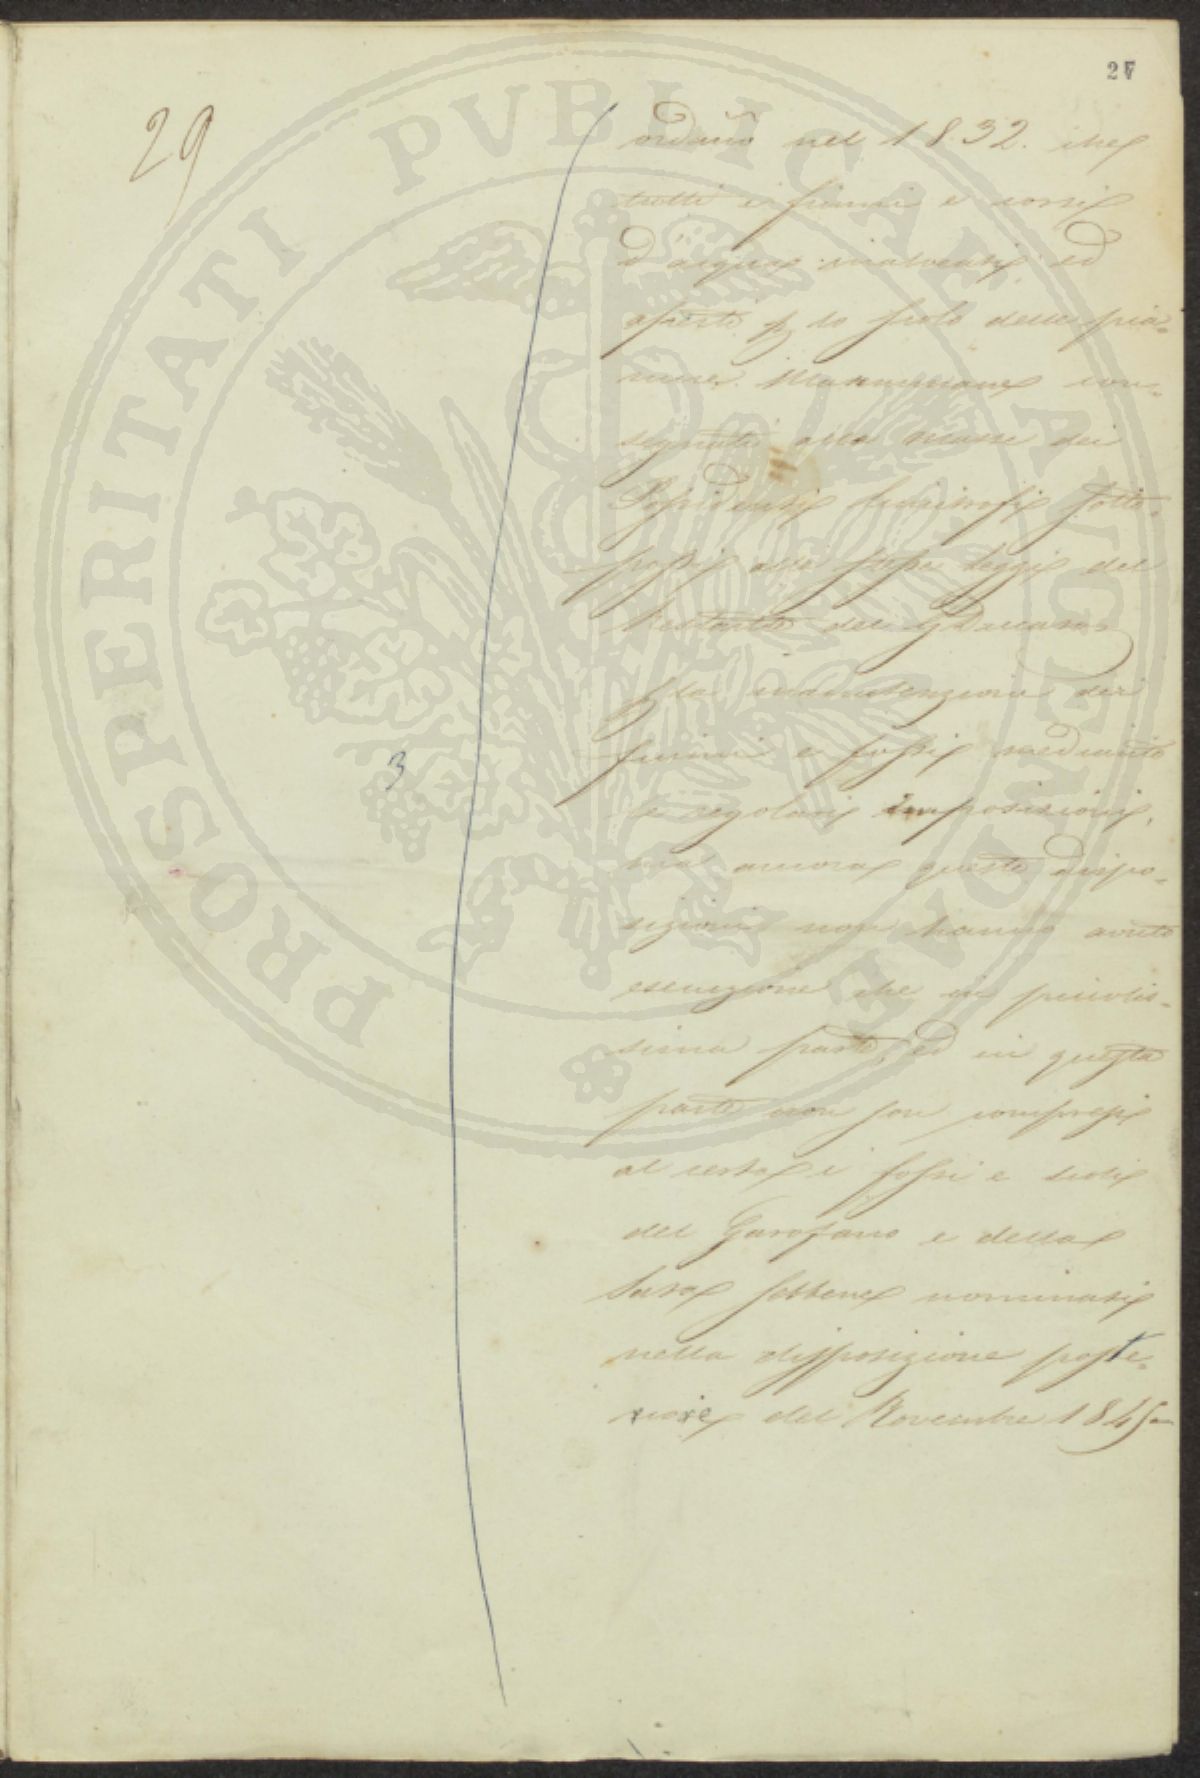 27
29
ordinò nel 1832. che
tutti i fiumi e corsi
d'acqua ed
aperti p lo scolo delle pia-
nure Maremmane con-
segnati alla masse dei
Possidenti limitrofi Sotto-
posti alle stesse leggi del
restante del GDucato
p la manutenzione dei
fiumi e fossi mediante
le regolari imposizioni,
ma ancora queste dispo-
sizioni non hanno avuto
esecuzione che in piccolis-
sima parte, ed in questa
parte non son compresi
al certo i fossi e scoli
del Garofano e della
sebbene nominati
nella dispposizione poste-
riore del Novembre 1845
3
PROSPERITATI PVBLICAE AVGENDAE